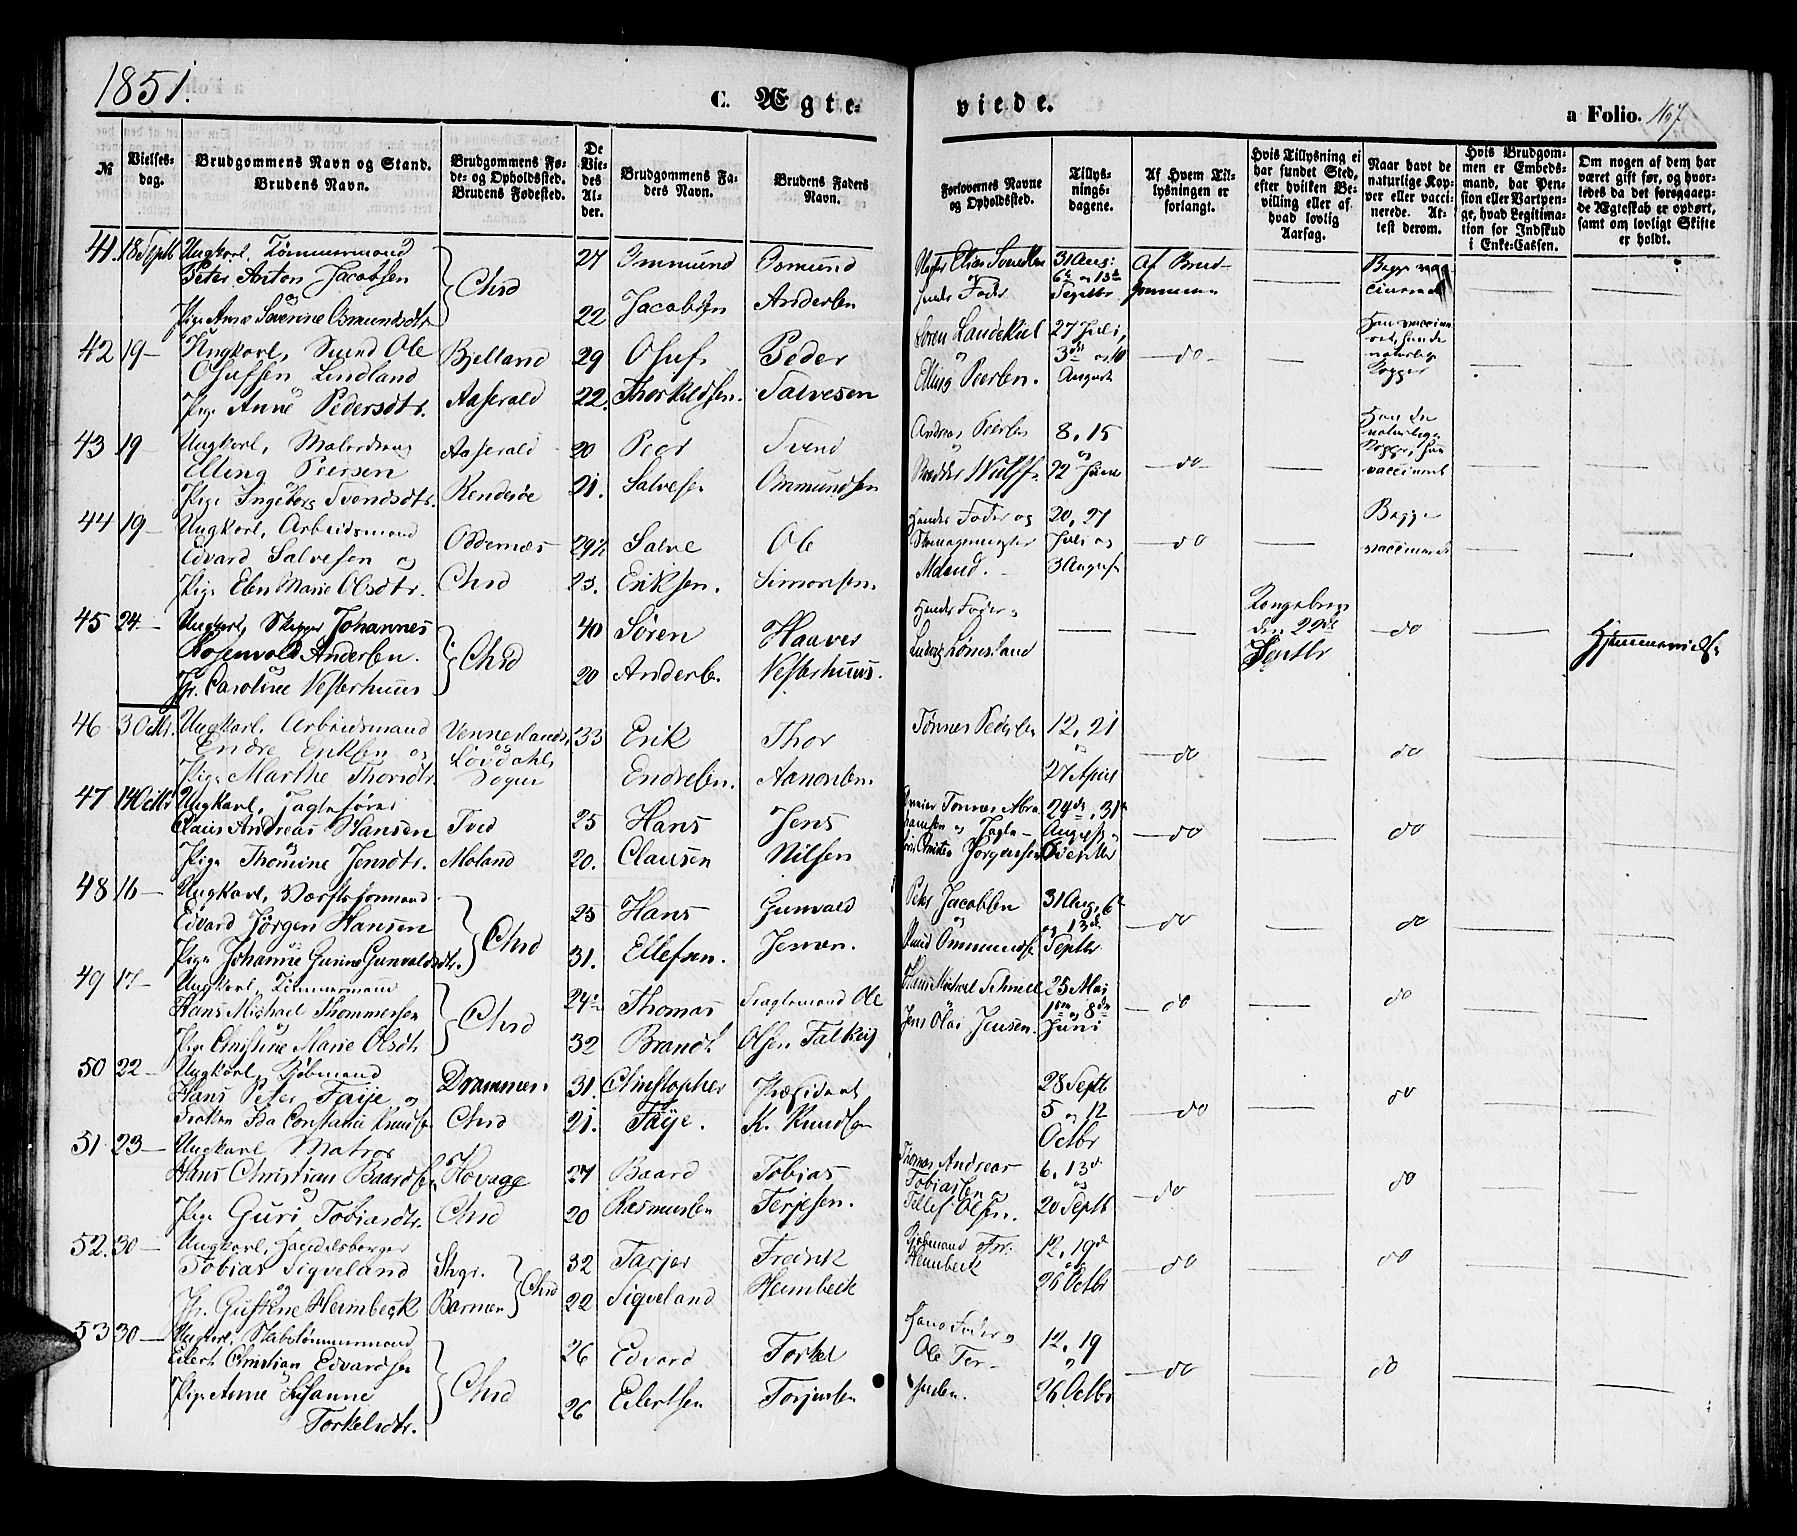 1851.
C. Ægte-
viede.
a Folio. 167
№
Vielses-
dag.
Brudgommens Navn og Stand.
Brudens Navn.
Brudgommens Fø-
de- og Opholdssted.
Brudens Fødested.
De
Vie-
des
Al-
der.
Brudgommens Fa-
ders Navn.
Brudens Faders
Navn.
Forlovernes Navne
og Opholdssted.
Tillys-
nings-
dagene.
Af Hvem Til-
lysningen er
forlangt.
Hvis Tillysning ei
har fundet Sted,
efter hvilken Be-
villing eller af
hvad lovlig
Aarsag.
Naar havt de
naturlige Kop-
per eller vacci-
nerede. At-
test derom.
Hvis Brudgom-
men er Embeds-
mand, har Pen-
sion eller Vartpen-
ge, hvad Legitima-
tion for Indskud
i Enke-Cassen.
Om nogen af dem har
været gift før, og hvor-
ledes da det foregaaen-
de Ægteskab er ophørt,
samt om lovligt Skifte
er holdt.
41. 18 Septb Ungkarl, Tømmermand
Peter Anton Jacobsen
og
Pige Anne Severine Osmundsdtr
Chrd
27
22
Ommund
Jacobsen
Osmund
Andersen
Elias
hendes Fader
31 Aug:
6te og 13de
Septbr
Af Brud-
gommen
Begge vac-
cinerede
42 19- Ungkarl, Svend Ole
Olufsen Lindland
og
Pige Anne Pedersdtr.
Bjelland
Aaserald
29
22.
Oluf
Thorkildsen.
Peder
Salvesen
Søren Landekiel
og
Elling Peersen.
27 Juli,
3die og 10
August
-do-
Han vaccine-
ret, hende
naturlige
Kopper
43 19- Ungkarl, Malerdreng
Elling Peersen
og
Pige Ingeborg Svendsdtr.
Aaserald
Randesøe
20
21.
Peer
Salvesen
Svend
Ommundsen
Andreas Peersen
og
Wulff
8, 15
og
22 Juni
-do-
Han de
naturlige
Kopper, hun
vaccineret
44 19- Ungkarl, Arbeidsmand
Edvard Salvesen og
Pige Elen Marie Olsdtr.
Oddernæs
Chrd
29½
23.
Salve
Eriksen.
Ole
Simonsen.
Hendes Fader og
Skomagermester
Moland.
20, 27
Juli og
3 August
-do
Begge
vaccinerede
45 24- Ungkarl, Skipper Johannes
Rosenvold Andersen.
og
Jfr. Caroline Vesterhuus
Chrd
40
20
Søren
Andersen.
Haaver
Vesterhuus.
Hendes Fader og
Ludvig Lønesland
Kongebrev
den 22de
Septbr
-do
Hjemmeviet.
46 3 Octbr. Ungkarl, Arbeidsmand
Endre Eriksen og
Pige Marthe Thorsdtr.
Vennerlands
og
Løvdahls
Sogn
33
Erik
Endresen.
Thor
Aanonsen.
Tønnes Pedersen
12, 21
og
27 April
-do
do
47 14 Octbr Ungkarl, Fagtefører
Claus Andreas Hansen
og
Pige Thomine Jensdtr.
Tved
Moland
25
20.
Hans
Clausen
Jens
Nilsen
Tønnes Abra-
hamsen og
Christen Jørgensen
24de, 31te
August og
Septbr
-do
do
48 16- Ungkarl, Værftsformand
Edvard Jørgen Hansen
og
Pige Johanne Gurine Gunvaldsdtr.
Chrd
25
31.
Hans
Ellefsen.
Gunvald
Jensen.
Peter Jacobsen
og
Knud Ommundsen
31 Aug, 6te
og 13de
Septbr
-do
do
49 17- Ungkarl, Tømmermand
Hans Michael Thommesen
og
Pige Christine Marie Olsdtr.
Chrd
24
32
Thomas
Brandt
Ole
Olsen Falkvig
Hans Michael Schmell
Jens Olai Jensen.
25 Mai
1ste og 8de
Juni
-do
do
50 22- Ungkarl, Kjøbmand
Hans Peter Faye og
Frøken Ida Constanse Knudsen
Drammen
Chrd
31.
21.
Christopher
Faye.
Præsident
K. Knudsen
28 Septb
5 og 12
Octbr
-do
do
51 23- Ungkarl, Matros
Hans Christian Baardsen
og
Pige Guri Tobiasdtr.
Høvaage
Chrd
27
20
Baard
Rasmussen
Tobias
Terjesen.
Thomas Andreas
Tobiassen og
Tellef Olsen.
6, 13de
og
20 Septb
-do
do
52. 30- Ungkarl, Handelsborger
Tobias Sigveland
og
Jfr. Gustine Heimbeck
Stvgr.
Barmen
Chrd
32
22
Tarjer
Sigveland
Fredrik
Heimbeck
Kjøbmand Fr.
Heimbeck
12, 19de
og
26 Octbr
-do
do
53 30- Ungkarl, Skibstømmermand
Eilert Christian Edvardsen
og
Pige Anne Susanne
Torkelsdtr.
Chrd
26
26
Edvard
Eilertsen
Torkel
Torjussen
Hans Fader og
Ole Ter-
jusen.
12, 19
og
26 Octbr
-do
do